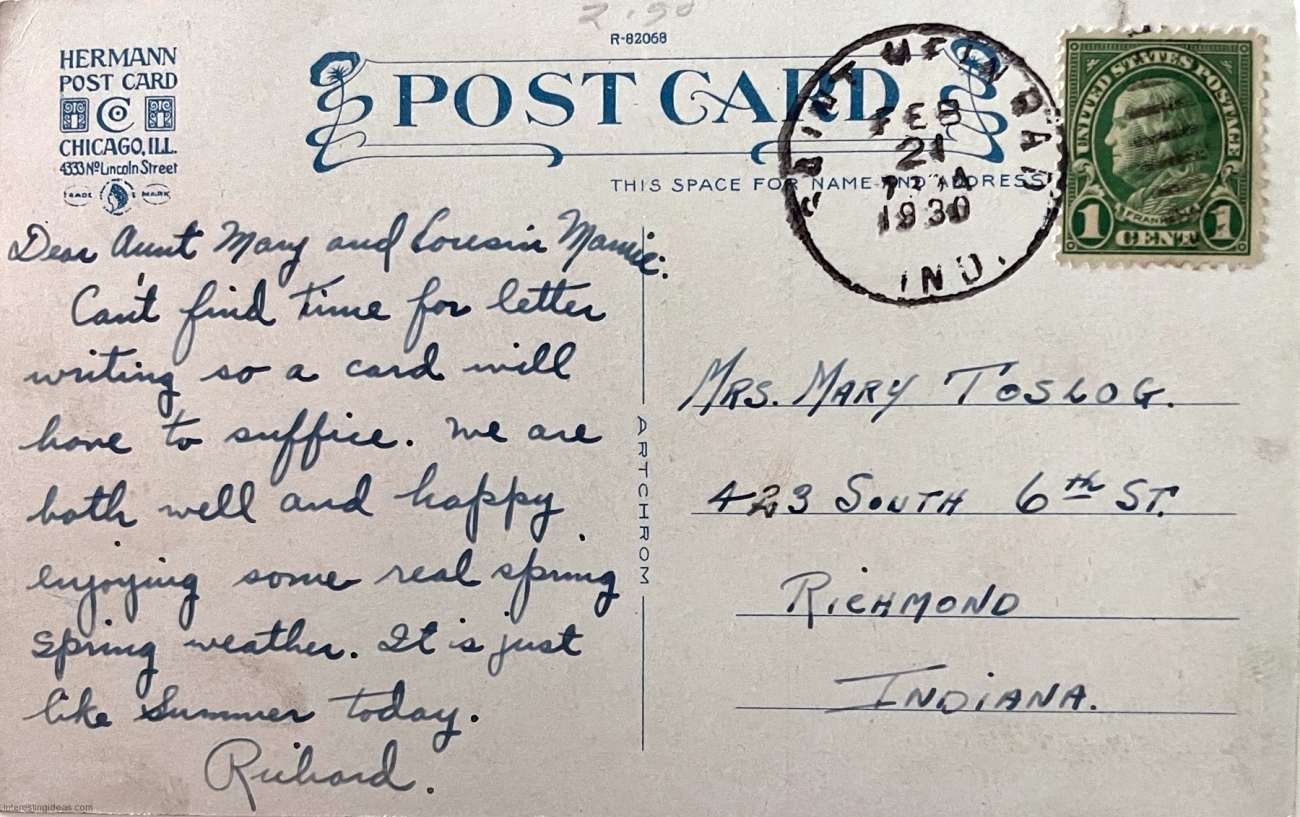 2.50
R-82068
HERMANN
POST CARD
C
CHICAGO, ILL.
4333 No Lincoln Street
TRADE MARK
POST CARD
THIS SPACE FOR NAME AND ADDRESS
SAINT MEINRAD
FEB
21
A
1930
IND.
UNITED STATES POSTAGE
FRANKLIN
1 CENT 1
Dear Aunt Mary and Cousin Mamie:
Can't find time for letter
writing so a card will
have to suffice. We are
both well and happy
enjoying some real spring
spring weather. It is just
like Summer today.
Richard.
ARTCHROM
MRS. MARY TOSLOG.
423 SOUTH 6th ST.
RICHMOND
INDIANA.
interestingideas.com